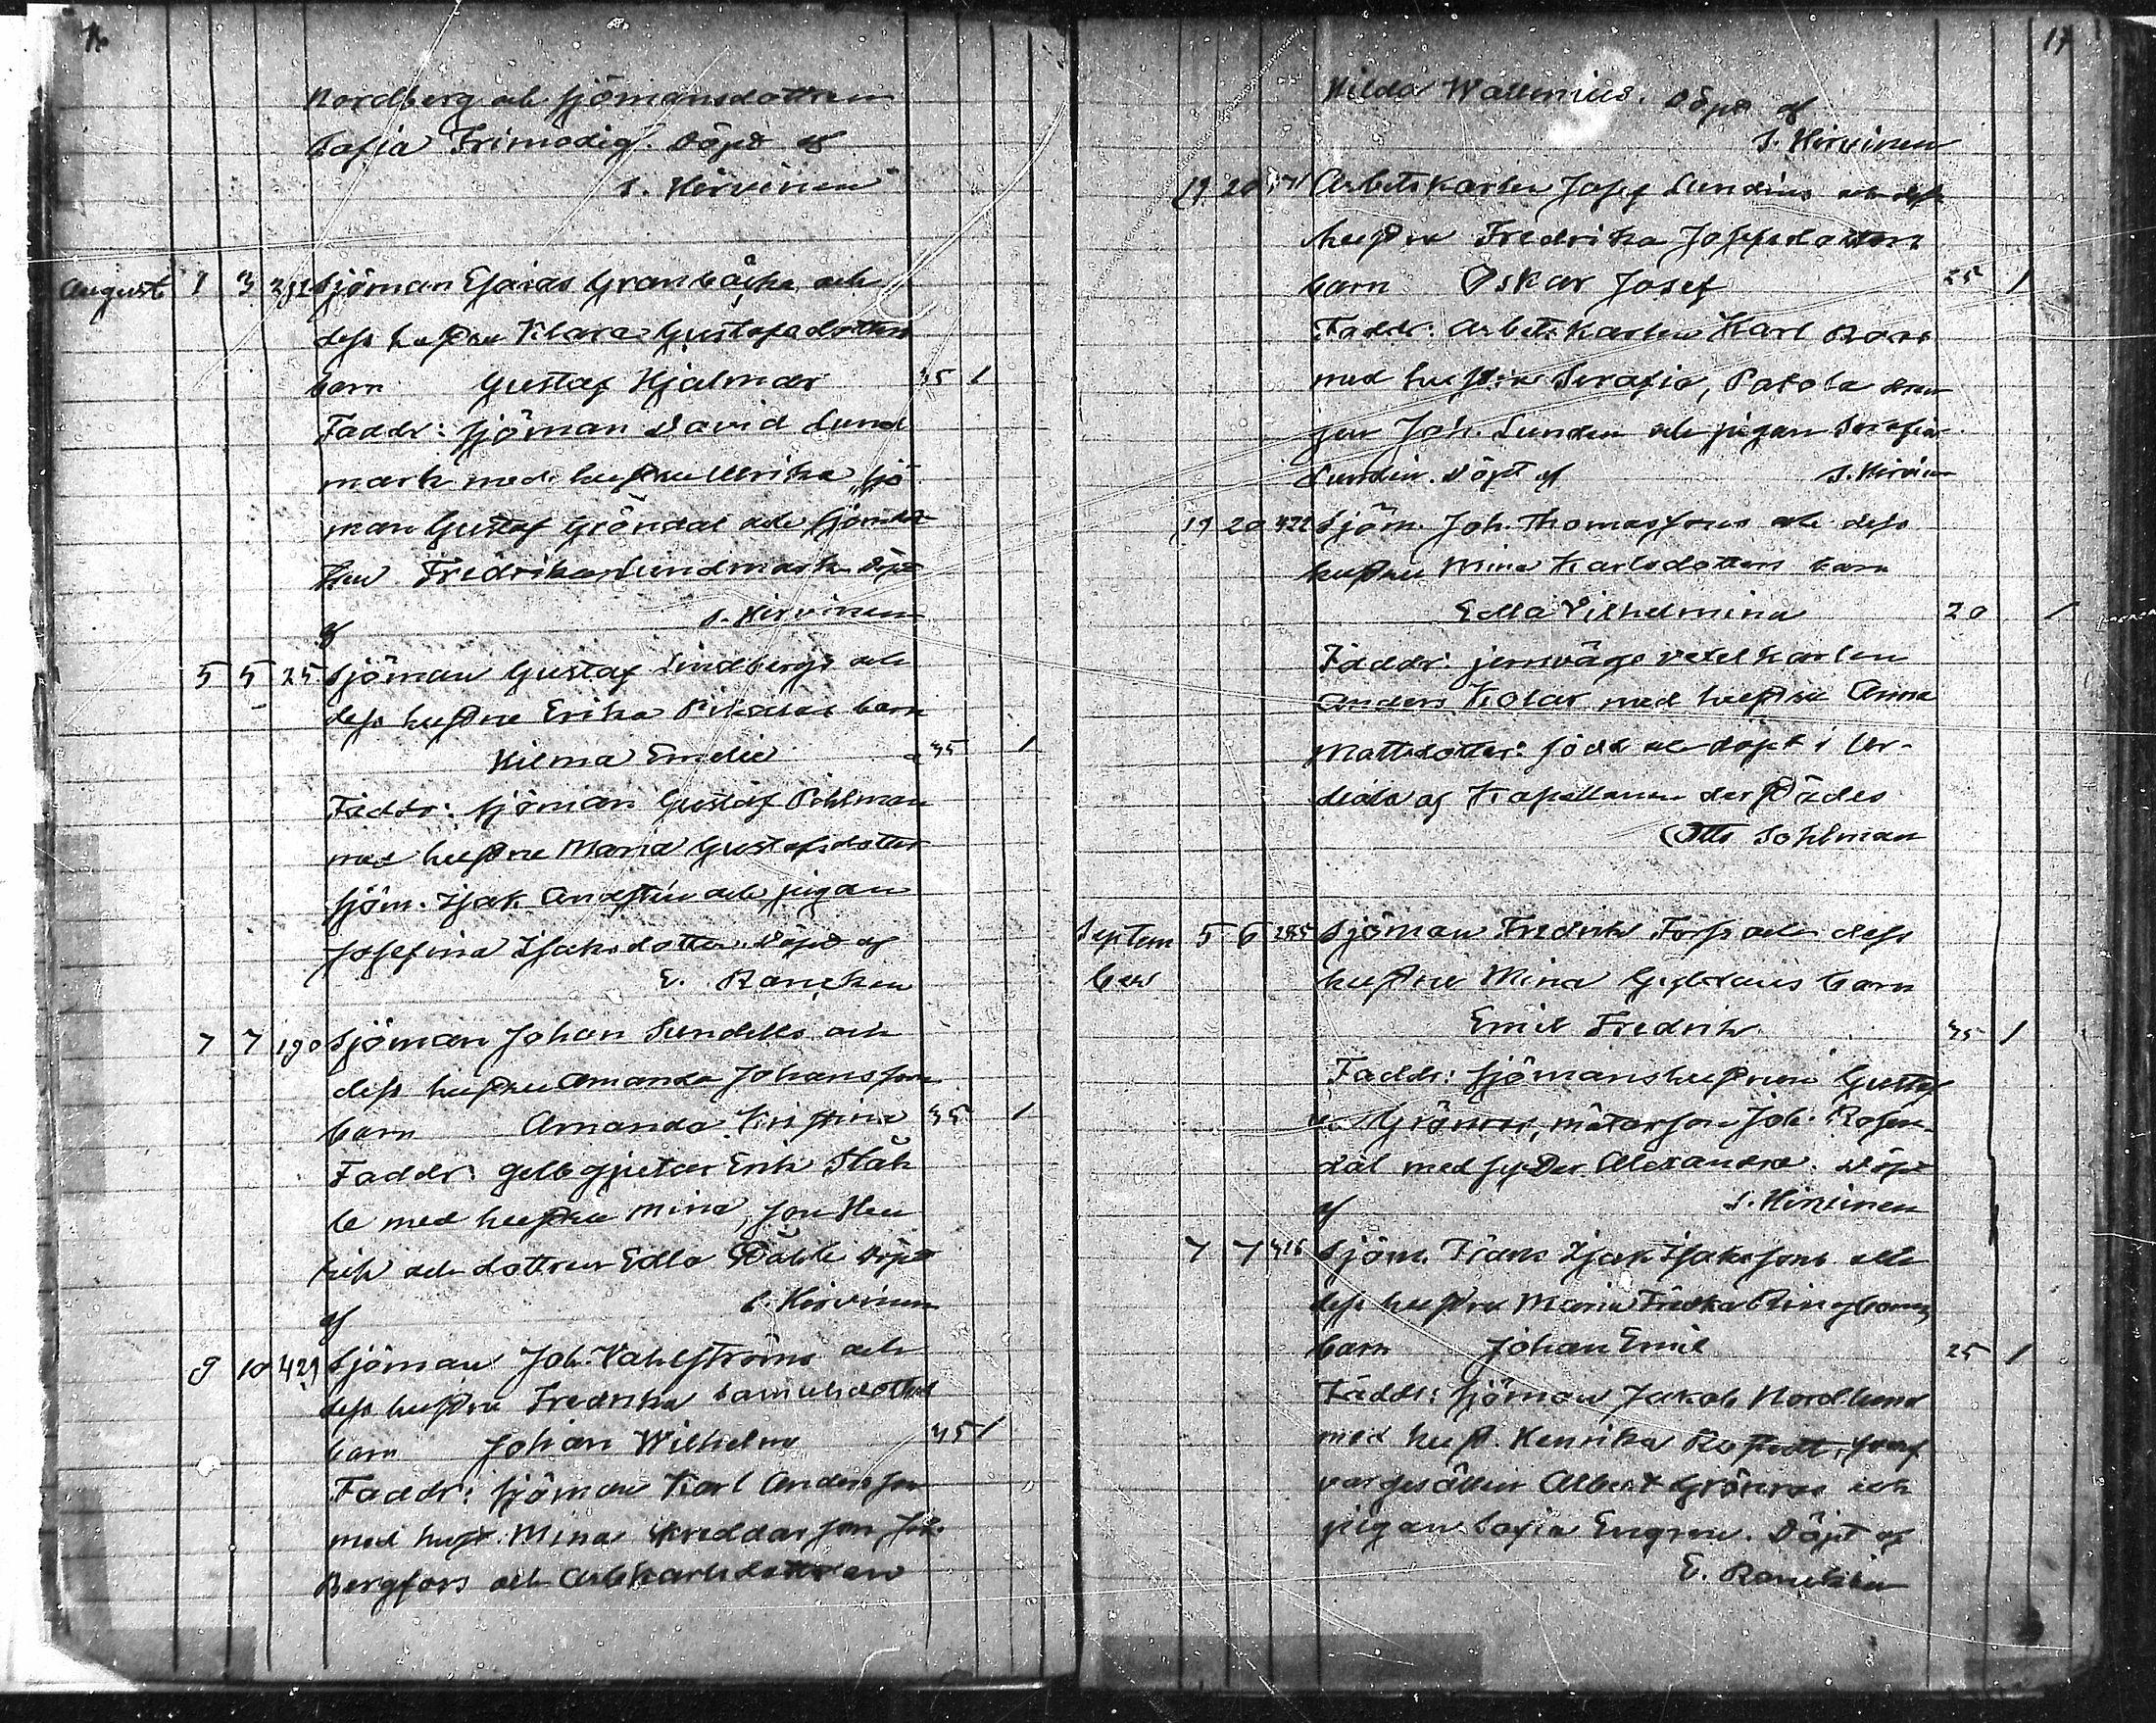 Nordberg och sjömansdottren
Sofia Frimodig. Döpt af
S. Hirvinen
Augusti 1 3 sjöman Esaias Granbäcks och
dess hustru Klara Gustafsdotters
barn Gustaf Hjalmar 35 1
Faddr: sjöman David Lund
mark med hustru Ulrika, sjö
man Gustaf Gröndal och
Fredrika Lindmark Döpt
af S. Hirvinen
5 5 25 Sjöman Gustaf Lindbergs och
dess hustru Erika barn
Hilma Emelie 35 1
Faddr: sjöman Gustaf Pohlman
med hustru Maria Gustafsdotter
sjöm. Isak och pigan
Josefina Isaksdotter. Döpt af
E. Rancken
7 7 190 Sjöman Johan Sundells och
dess hustru Amanda Johansson
barn Amanda Kristina 35 1
Faddr: gelbgjutar Erik Ståh
le med hustru Mina, son Hen
rik och dottren Edla Ståhle Döpt
af S. Hirvinen
9 10 429 Sjöman Joh. Vahlströms och
dess hustru Fredrika Samuelsdotters
barn Johan Wilhelm 35 1
Faddr: sjöman Karl Andersson
med hust. Mina skreddarson Joh.
Bergfors och Arbkarlsdottren
17
Hilda Wallenius. Döpt af
S. Hirvinen
19 20 Arbetskarlen Josef Sundins och dess
hustru Fredrika Josefsdotters
barn Oskar Josef 25 1
Faddr: Arbetskarlen Karl Roos
med hustru Serafia,
Joh. Sunden och pigan Serafia
Sundin. Döpt af S. Hirvinen
19 20 422 Sjöm. Joh. Thomassons och dess
hustru Mina Karlsdotters barn
Edla Vilhelmina 20 1
Faddr: jernvägs vexelkarlen
Anders Kolar med hustru Anna
Mattsdotter: född och döpt i Ur-
diala af Kapellanen derstädes
Otto Sohlman
Septem 5 6 285 Sjöman Fredrik Forss och dess
ber hustru Mina barn
Emil Fredrik 35 1
Faddr: sjömanshustrun Gustaf
a Grönroos, mätarson Joh. Rosen-
dal med syster Alexandra. Döpt
af S. Hirvinen
7 7 Sjöm. Frans Isak Isakssons och
dess hustru Maria Fredrika Ringboms
barn Johan Emil 25 1
Faddr: sjöman Jakob Nordlund
med hust. Henrika
vargesällen Albert Grönroos och
pigan Sofia Engren. Döpt af
E. Rancken